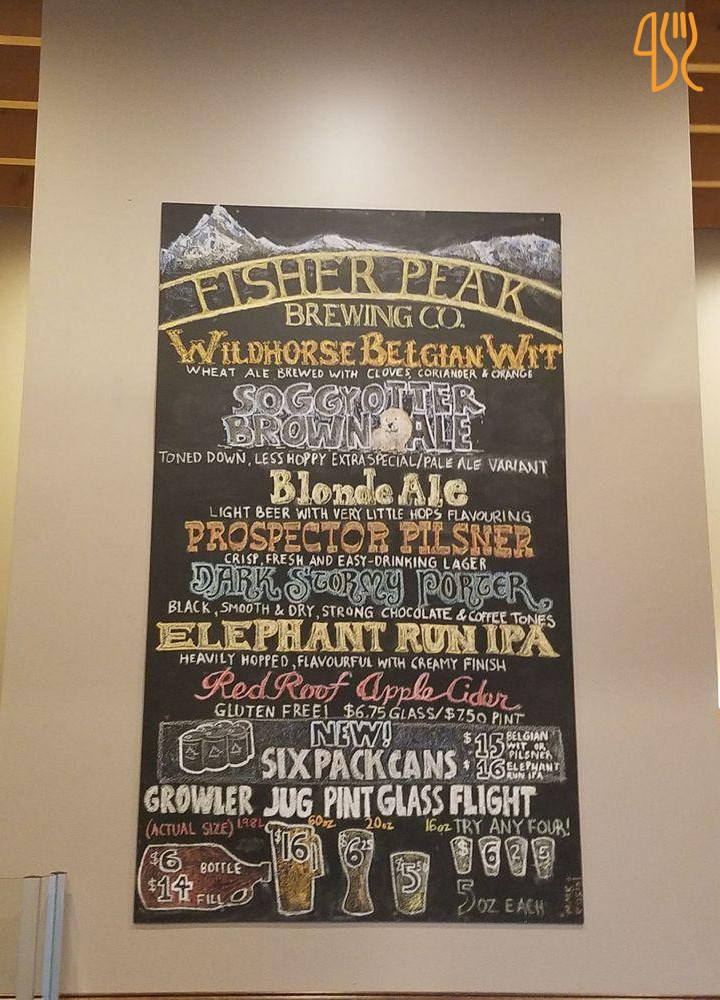 FISHER PEAK
BREWING CO.
WILDHORSE BELGIAN WIT
WHEAT ALE BREWED WITH CLOVES, CORIANDER & ORANGE
SOGGY OTTER
BROWN ALE
TONED DOWN, LESS HOPPY EXTRA SPECIAL/PALE ALE VARIANT
Blonde Ale
LIGHT BEER WITH VERY LITTLE HOPS FLAVOURING
PROSPECTOR PILSNER
CRISP, FRESH AND EASY-DRINKING LAGER
DARK STORMY PORTER
BLACK, SMOOTH & DRY, STRONG CHOCOLATE & COFFEE TONES
ELEPHANT RUN IPA
HEAVILY HOPPED, FLAVOURFUL WITH CREAMY FINISH
Red Roof Apple Cider
GLUTEN FREE! $6.75 GLASS/$7.50 PINT
NEW!
SIX PACK CANS
$15 BELGIAN WIT OR PILSNER
$16 ELEPHANT RUN IPA
GROWLER JUG PINT GLASS FLIGHT
(ACTUAL SIZE) 1.98L 60oz 20oz 16oz TRY ANY FOUR!
$6 BOTTLE
$14 FILL
$16 $6.25 $5.50 $6.25
5 OZ EACH